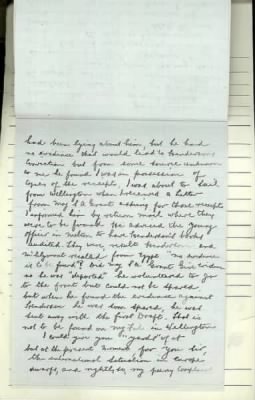 had been lying about him, but he had
no evidence that would lead to Henderson's
conviction but from some source unknown
to me he found I was in possession of
copies of the receipts, I was about to sail
from Wellington when I received a letter
from Maj J A Grant asking for those receipts
I informed him by return mail where they
were to be found. He advised the young
officer in to have Henderson's books
audited. They were, result Henderson and
recalled from Egypt. "no evidence
is to be found"! Did Maj J A Grant give evidence
no he was "deported" he volunteered to go
to the front but could not be spared
but when he found the evidence against
Henderson he was soon spared, he was
sent away with the first Draft. That is
not to be found on my file in Wellington
I could give you "yards" of it
but at the present moment for you sir,
the international situation in Europe
dwarfs, and rightly so, my puny